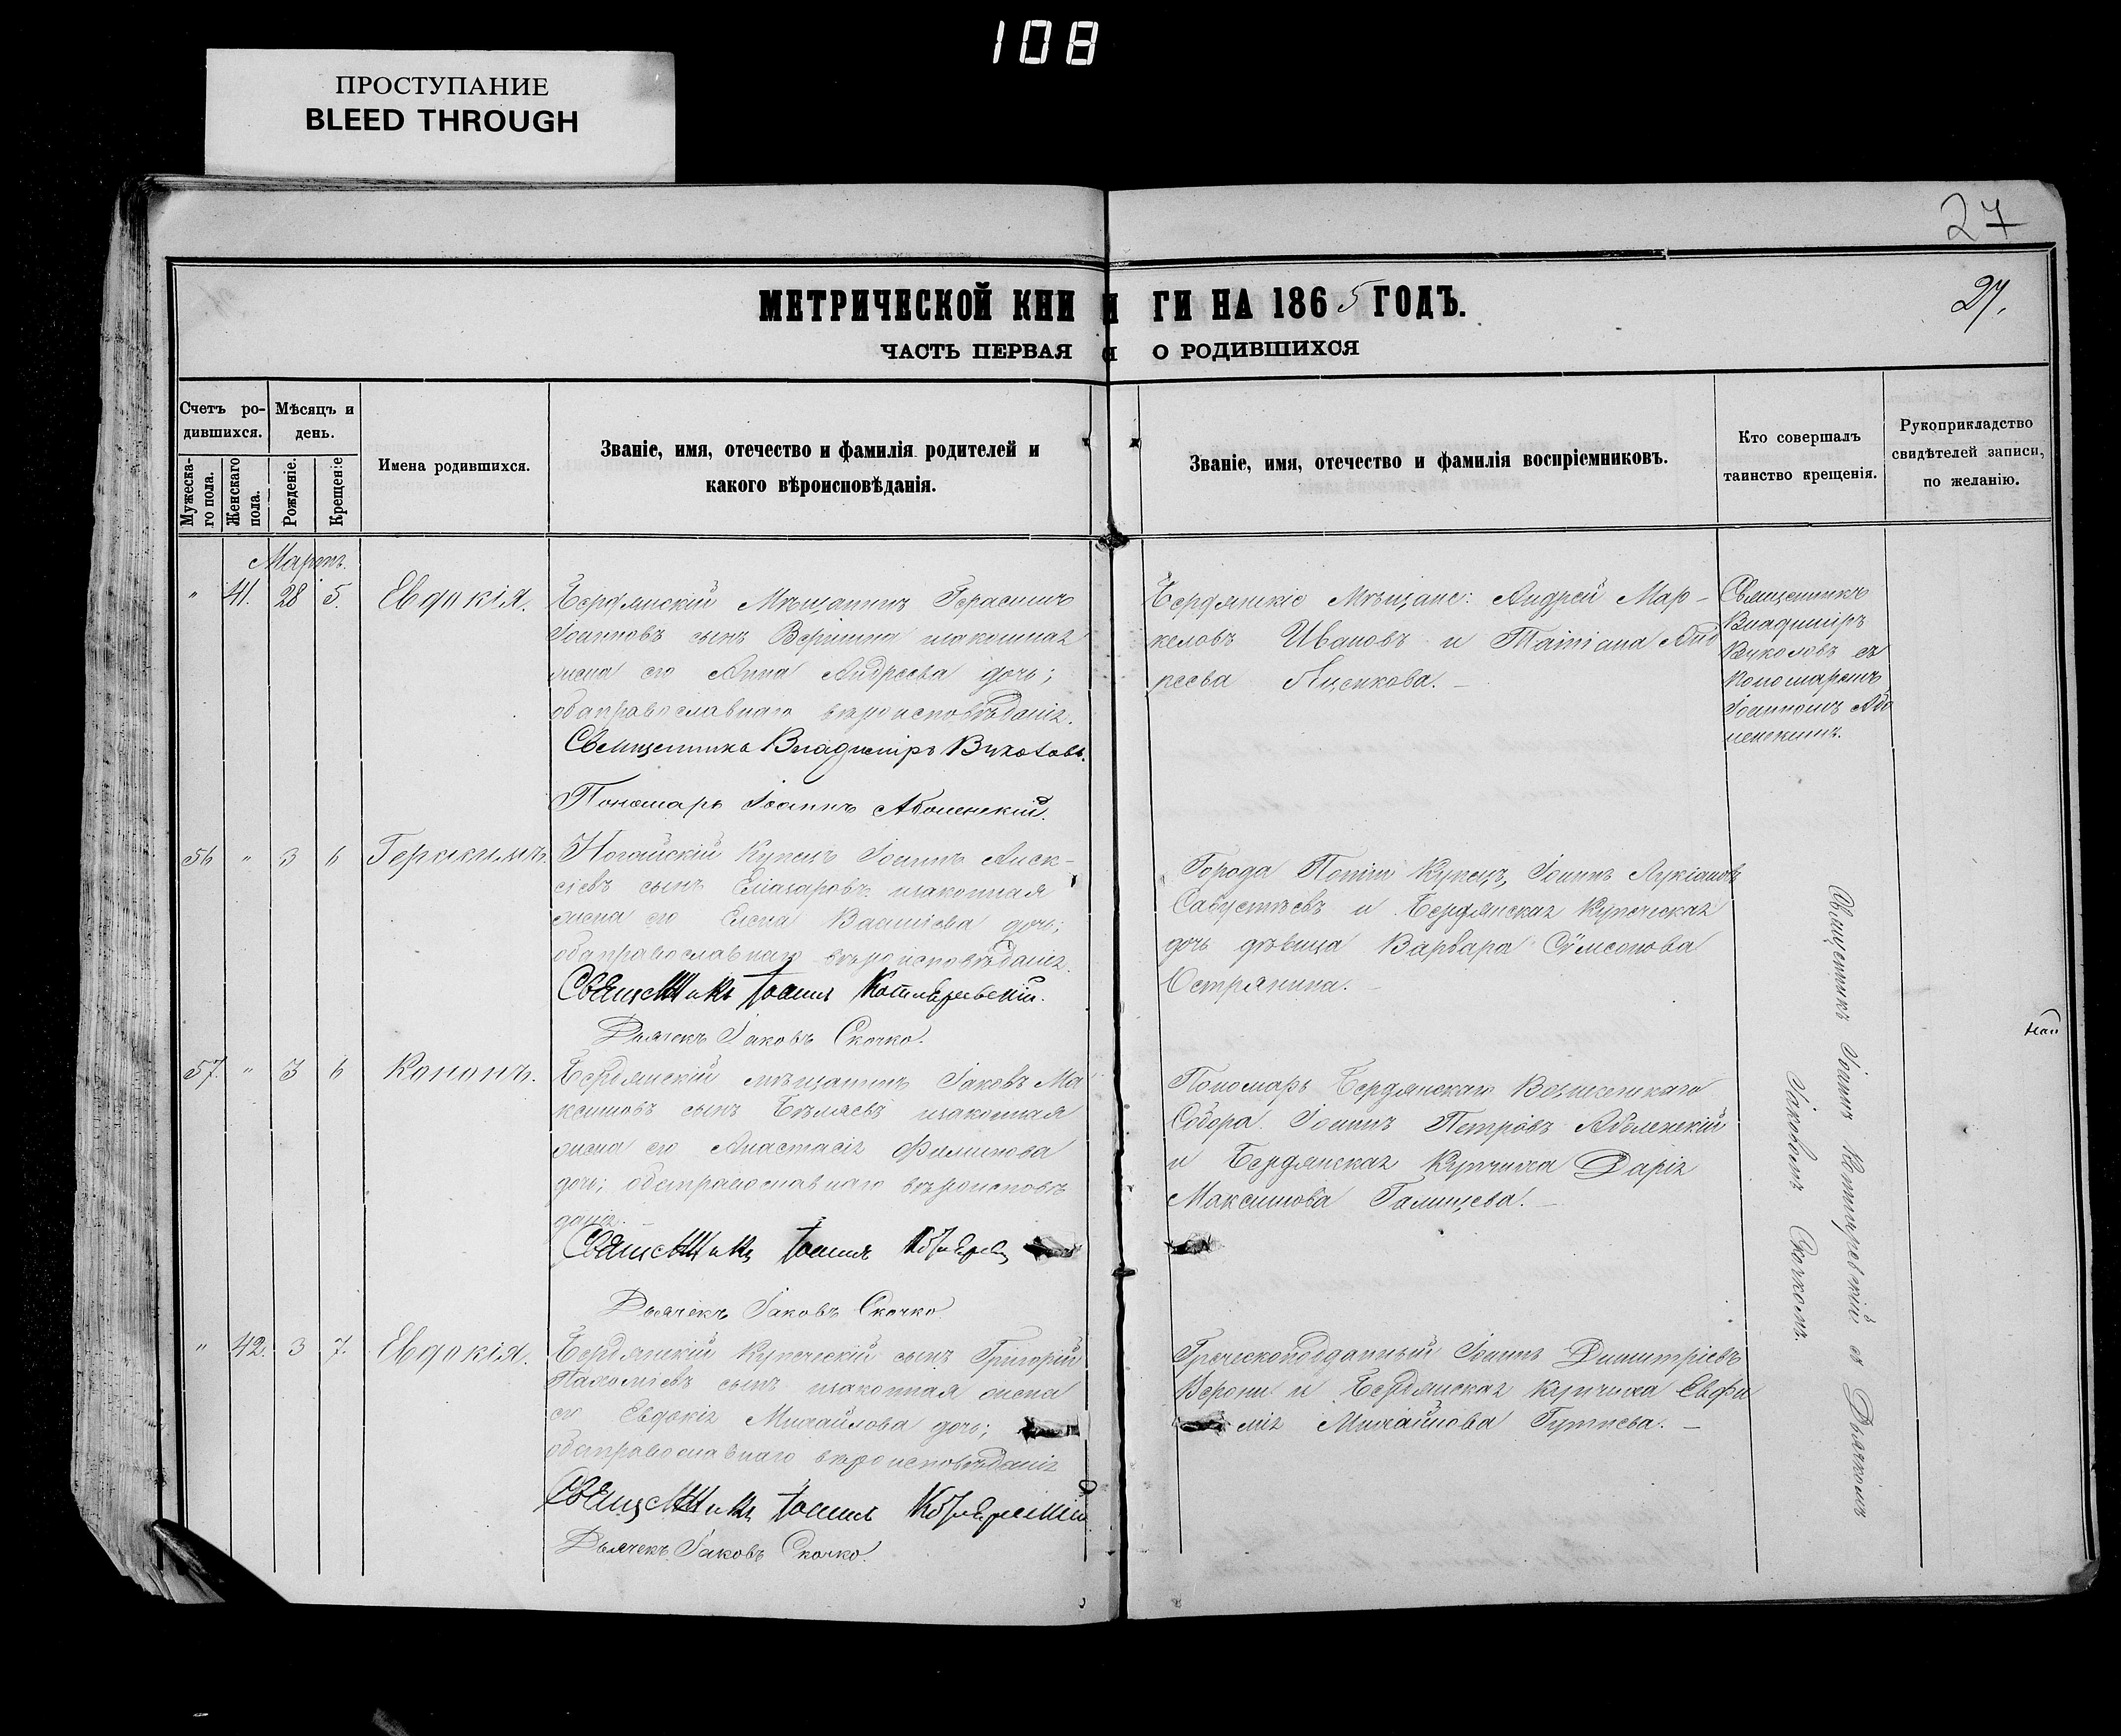 108
ПРОСТУПАНИЕ
BLEED THROUGH
27
МЕТРИЧЕСКОЙ КНИ И ГИ НА 1865 ГОДЪ.
27.
ЧАСТЬ ПЕРВАЯ Я О РОДИВШИХСЯ
Счетъ ро-
дившихся.
Мужеска-
го пола.
Женскаго
пола.
Мѣсяцъ и
день.
Рожденіе.
Крещеніе
Имена родившихся.
Званіе, имя, отечество и фамилія родителей и
какого вѣроисповѣданія.
Званіе, имя, отечество и фамилія воспріемниковъ.
Кто совершалъ
таинство крещенія.
Рукоприкладство
свидѣтелей записи,
по желанію.
Мартъ.
" 41. 28 5. Евдокія.
Бердянскій Мѣщанинъ Герасимъ
Іоанновъ сынъ Верпина изаконная
жена его Анна Андреева дочь;
оба православнаго вѣроисповѣданія.
Священникъ Владиміръ Вуколовъ.
Пономарь Іоаннъ Аболенскій.
Бердянскіе Мѣщане: Андрей Мар-
келовъ Ивановъ и Татіана Анд
реева
Священникъ
Владиміръ
Вуколовъ съ
Пономаремъ
Іоанномъ Або
ленскимъ.
56 " 3 6
Ногайскій Купецъ Іоаннъ Алек-
сіевъ сынъ Елазаровъ изаконная
жена его Елена Василіева дочь;
оба православнаго вѣроисповѣданія.
Священникъ Іоаннъ Котляревскій.
Дьячекъ Іаковъ Скочко.
Города Купецъ, Іоаннъ Лукіановъ
и Бердянская Купеческая
дочь дѣвица Варвара Сѵмеонова
Острянина.
57. " 3 6 Кононъ.
Бердянскій мѣщанинъ Іаковъ Ма
ксимовъ сынъ Бѣляевъ изаконная
жена его Анастасія Филипова
дочь; оба православнаго вѣроисповѣ
данія.
Священникъ Іоаннъ
Дьячекъ Іаковъ Скочко
Пономарь Бердянскаго Вознесенскаго
Собора Іоаннъ Петровъ Аболенскій
и Бердянская Купчиха Дарія
Максимова Галицева.
" 42. 3 7. Евдокія.
Бердянскій Купеческій сынъ Григорій
Пахоміевъ сынъ изаконная жена
его Евдокія Михайлова дочь;
оба православнаго вѣроисповѣданія
Священникъ Іоаннъ Котляревскій
Дьячекъ Іаковъ Скочко.
Греческоподданный Іоаннъ Димитріевъ
Верони и Бердянская купчиха Евфи
мія Михайлова
Священникъ Іоаннъ Котляревскій съ Дьячкомъ
Іаковомъ Скочкомъ.